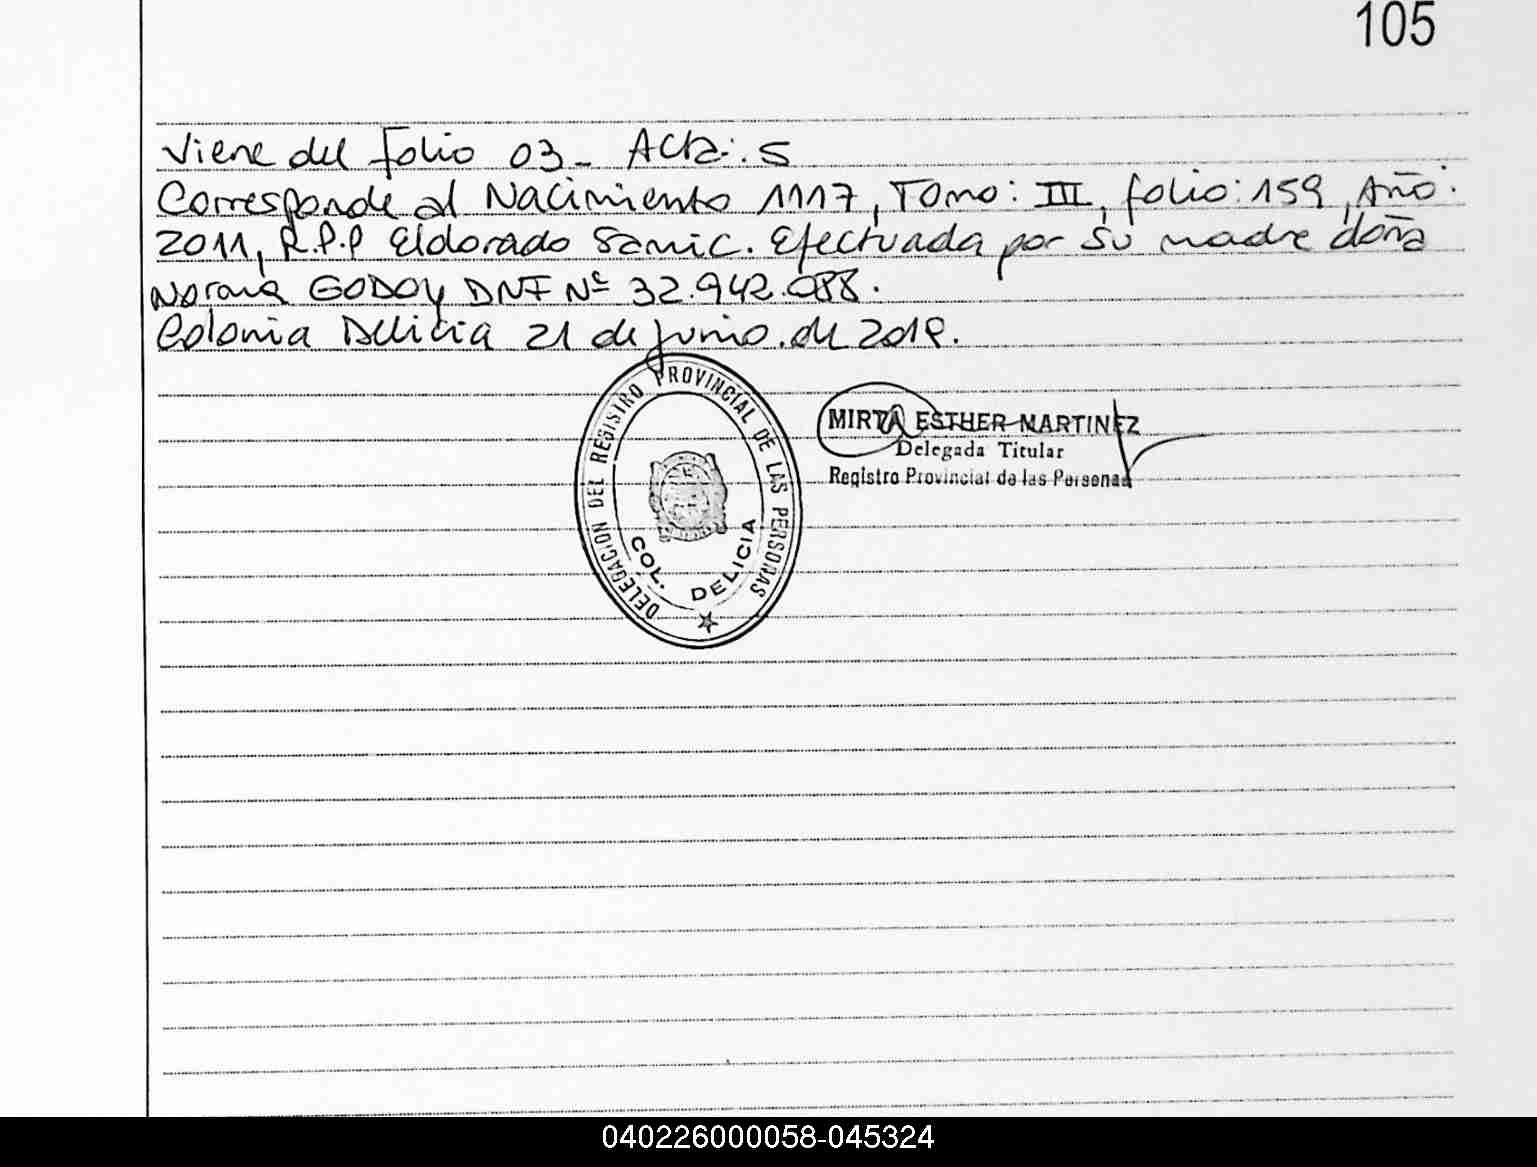 105
Viene del Folio 03 - Acta: 5
Corresponde al Nacimiento 1117, Tomo: III, folio: 159, Año:
2011, R.P.P Eldorado Samic. Efectuada por su madre doña
Norma GODOY DNI Nº 32.942.088.
Colonia Delicia 21 de Junio de
DELEGACION DEL REGISTRO PROVINCIAL DE LAS PERSONAS
COL. DELICIA
MIRTA ESTHER MARTINEZ
Delegada Titular
Registro Provincial de las Personas
040226000058-045324